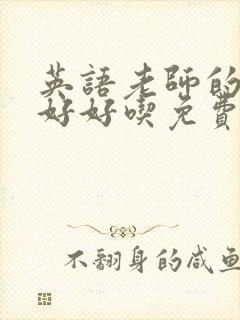 英語老師的
好好喫免費
不翻身的咸魚